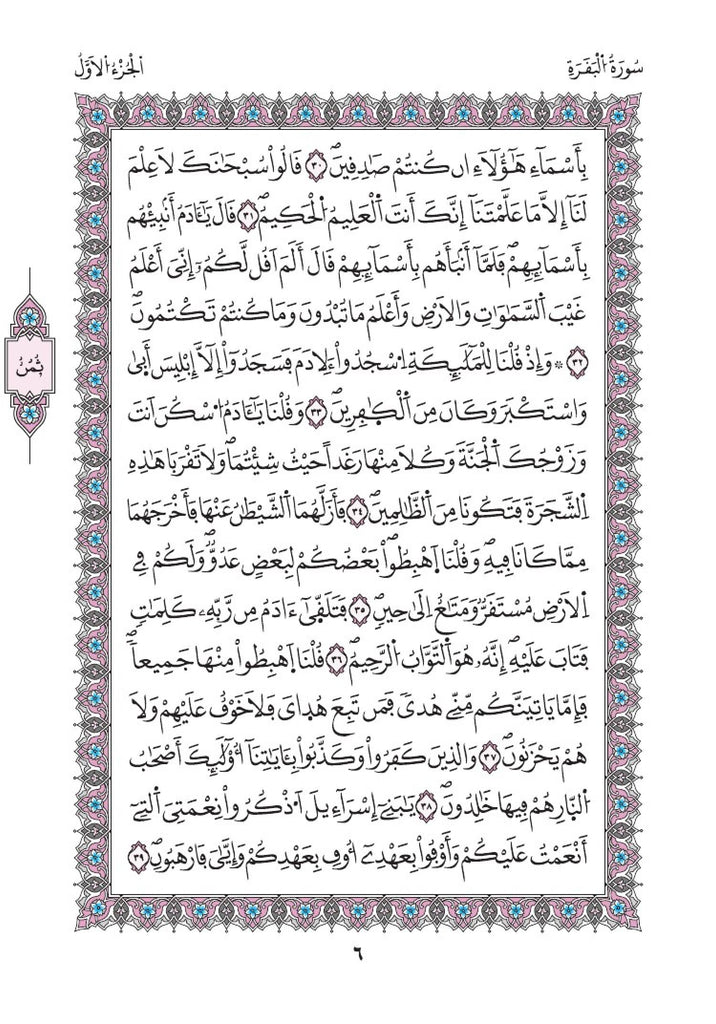 سُورَةُ اُ۬لْبَقَرَةِ
اُ۬لْجُزْءُ اُ۬لَاوَّلُ
بِأَسْمَآءِ هَٰٓؤُلَآءِ ان كُنتُمْ صَٰدِقِينَۖ ٣٠ قَالُواْ سُبْحَٰنَكَ لَا عِلْمَ
لَنَآ إِلَّا مَا عَلَّمْتَنَآ إِنَّكَ أَنتَ اَ۬لْعَلِيمُ اُ۬لْحَكِيمُۖ ٣١ قَالَ يَٰٓـَٔادَمُ أَنۢبِئْهُم
بِأَسْمَآئِهِمْۖ فَلَمَّآ أَنۢبَأَهُم بِأَسْمَآئِهِمْ قَالَ أَلَمَ اَقُل لَّكُمُۥٓ إِنِّيَ أَعْلَمُ
غَيْبَ اَ۬لسَّمَٰوَٰتِ وَالَارْضِ وَأَعْلَمُ مَا تُبْدُونَ وَمَا كُنتُمْ تَكْتُمُونَۖ
٣٢ ۞ وَإِذْ قُلْنَا لِلْمَلَٰٓئِكَةِ اِ۟سْجُدُواْ لِأٓدَمَ فَسَجَدُوٓاْ إِلَّآ إِبْلِيسَ أَب۪يٰ
وَاسْتَكْبَرَ وَكَانَ مِنَ اَ۬لْكٰ۪فِرِينَۖ ٣٣ وَقُلْنَا يَٰٓـَٔادَمُ اُ۟سْكُنَ اَنتَ
وَزَوْجُكَ اَ۬لْجَنَّةَ وَكُلَا مِنْهَا رَغَداً حَيْثُ شِئْتُمَاۖ وَلَا تَقْرَبَا هَٰذِهِ
اِ۬لشَّجَرَةَ فَتَكُونَا مِنَ اَ۬لظَّٰلِمِينَۖ ٣٤ فَأَزَلَّهُمَا اَ۬لشَّيْطَٰنُ عَنْهَا فَأَخْرَجَهُمَا
مِمَّا كَانَا فِيهِۖ وَقُلْنَا اَ۪هْبِطُواْۖ بَعْضُكُمْ لِبَعْضٍ عَدُوّٞۖ وَلَكُمْ فِے
اِ۬لَارْضِ مُسْتَقَرّٞ وَمَتَٰعٌ اِلَىٰ حِينٖۖ ٣٥ فَتَلَقّ۪ىٰٓ ءَادَمُ مِن رَّبِّهِۦ كَلِمَٰتٖ
فَتَابَ عَلَيْهِۖ إِنَّهُۥ هُوَ اَ۬لتَّوَّابُ اُ۬لرَّحِيمُۖ ٣٦ قُلْنَا اَ۪هْبِطُواْ مِنْهَا جَمِيعاٗۖ
فَإِمَّا يَاتِيَنَّكُم مِّنِّے هُديٗ فَمَن تَبِعَ هُد۪ايَ فَلَا خَوْفٌ عَلَيْهِمْ وَلَا
هُمْ يَحْزَنُونَۖ ٣٧ وَالذِينَ كَفَرُواْ وَكَذَّبُواْ بِـَٔايَٰتِنَآ أُوْلَٰٓئِكَ أَصْحَٰبُ
اُ۬لنّ۪ارِ هُمْ فِيهَا خَٰلِدُونَۖ ٣٨ يَٰبَنِےٓ إِسْرَآءِيلَ اَ۟ذْكُرُواْ نِعْمَتِيَ اَ۬لتِےٓ
أَنْعَمْتُ عَلَيْكُمْ وَأَوْفُواْ بِعَهْدِےٓ أُوفِ بِعَهْدِكُمْ وَإِيَّٰيَ فَارْهَبُونِۖ ٣٩
ثُمُنُ
٦